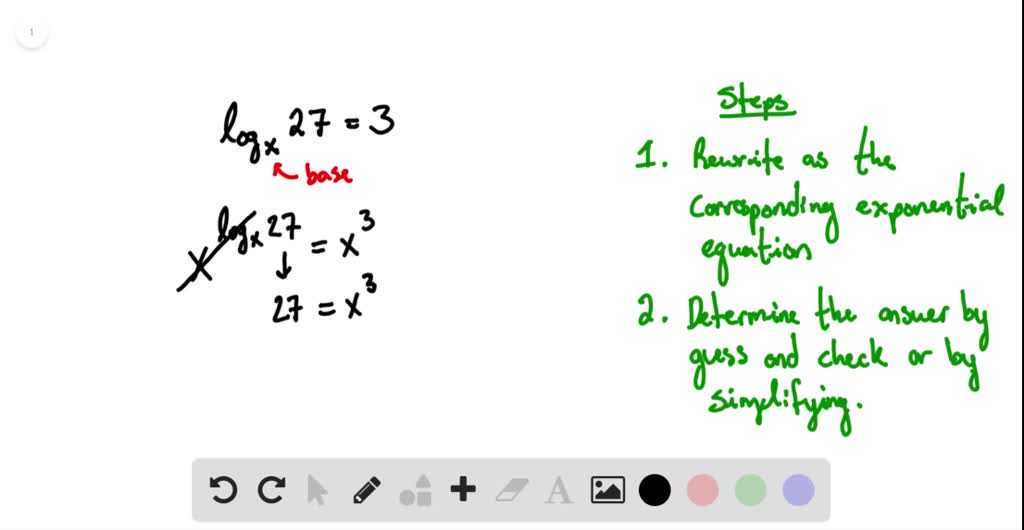 1
log_x 27 = 3
base
x^log_x 27 = x^3
27 = x^3
Steps
1. Rewrite as the
corresponding exponential
equation
2. Determine the answer by
guess and check or by
simplifying.
A